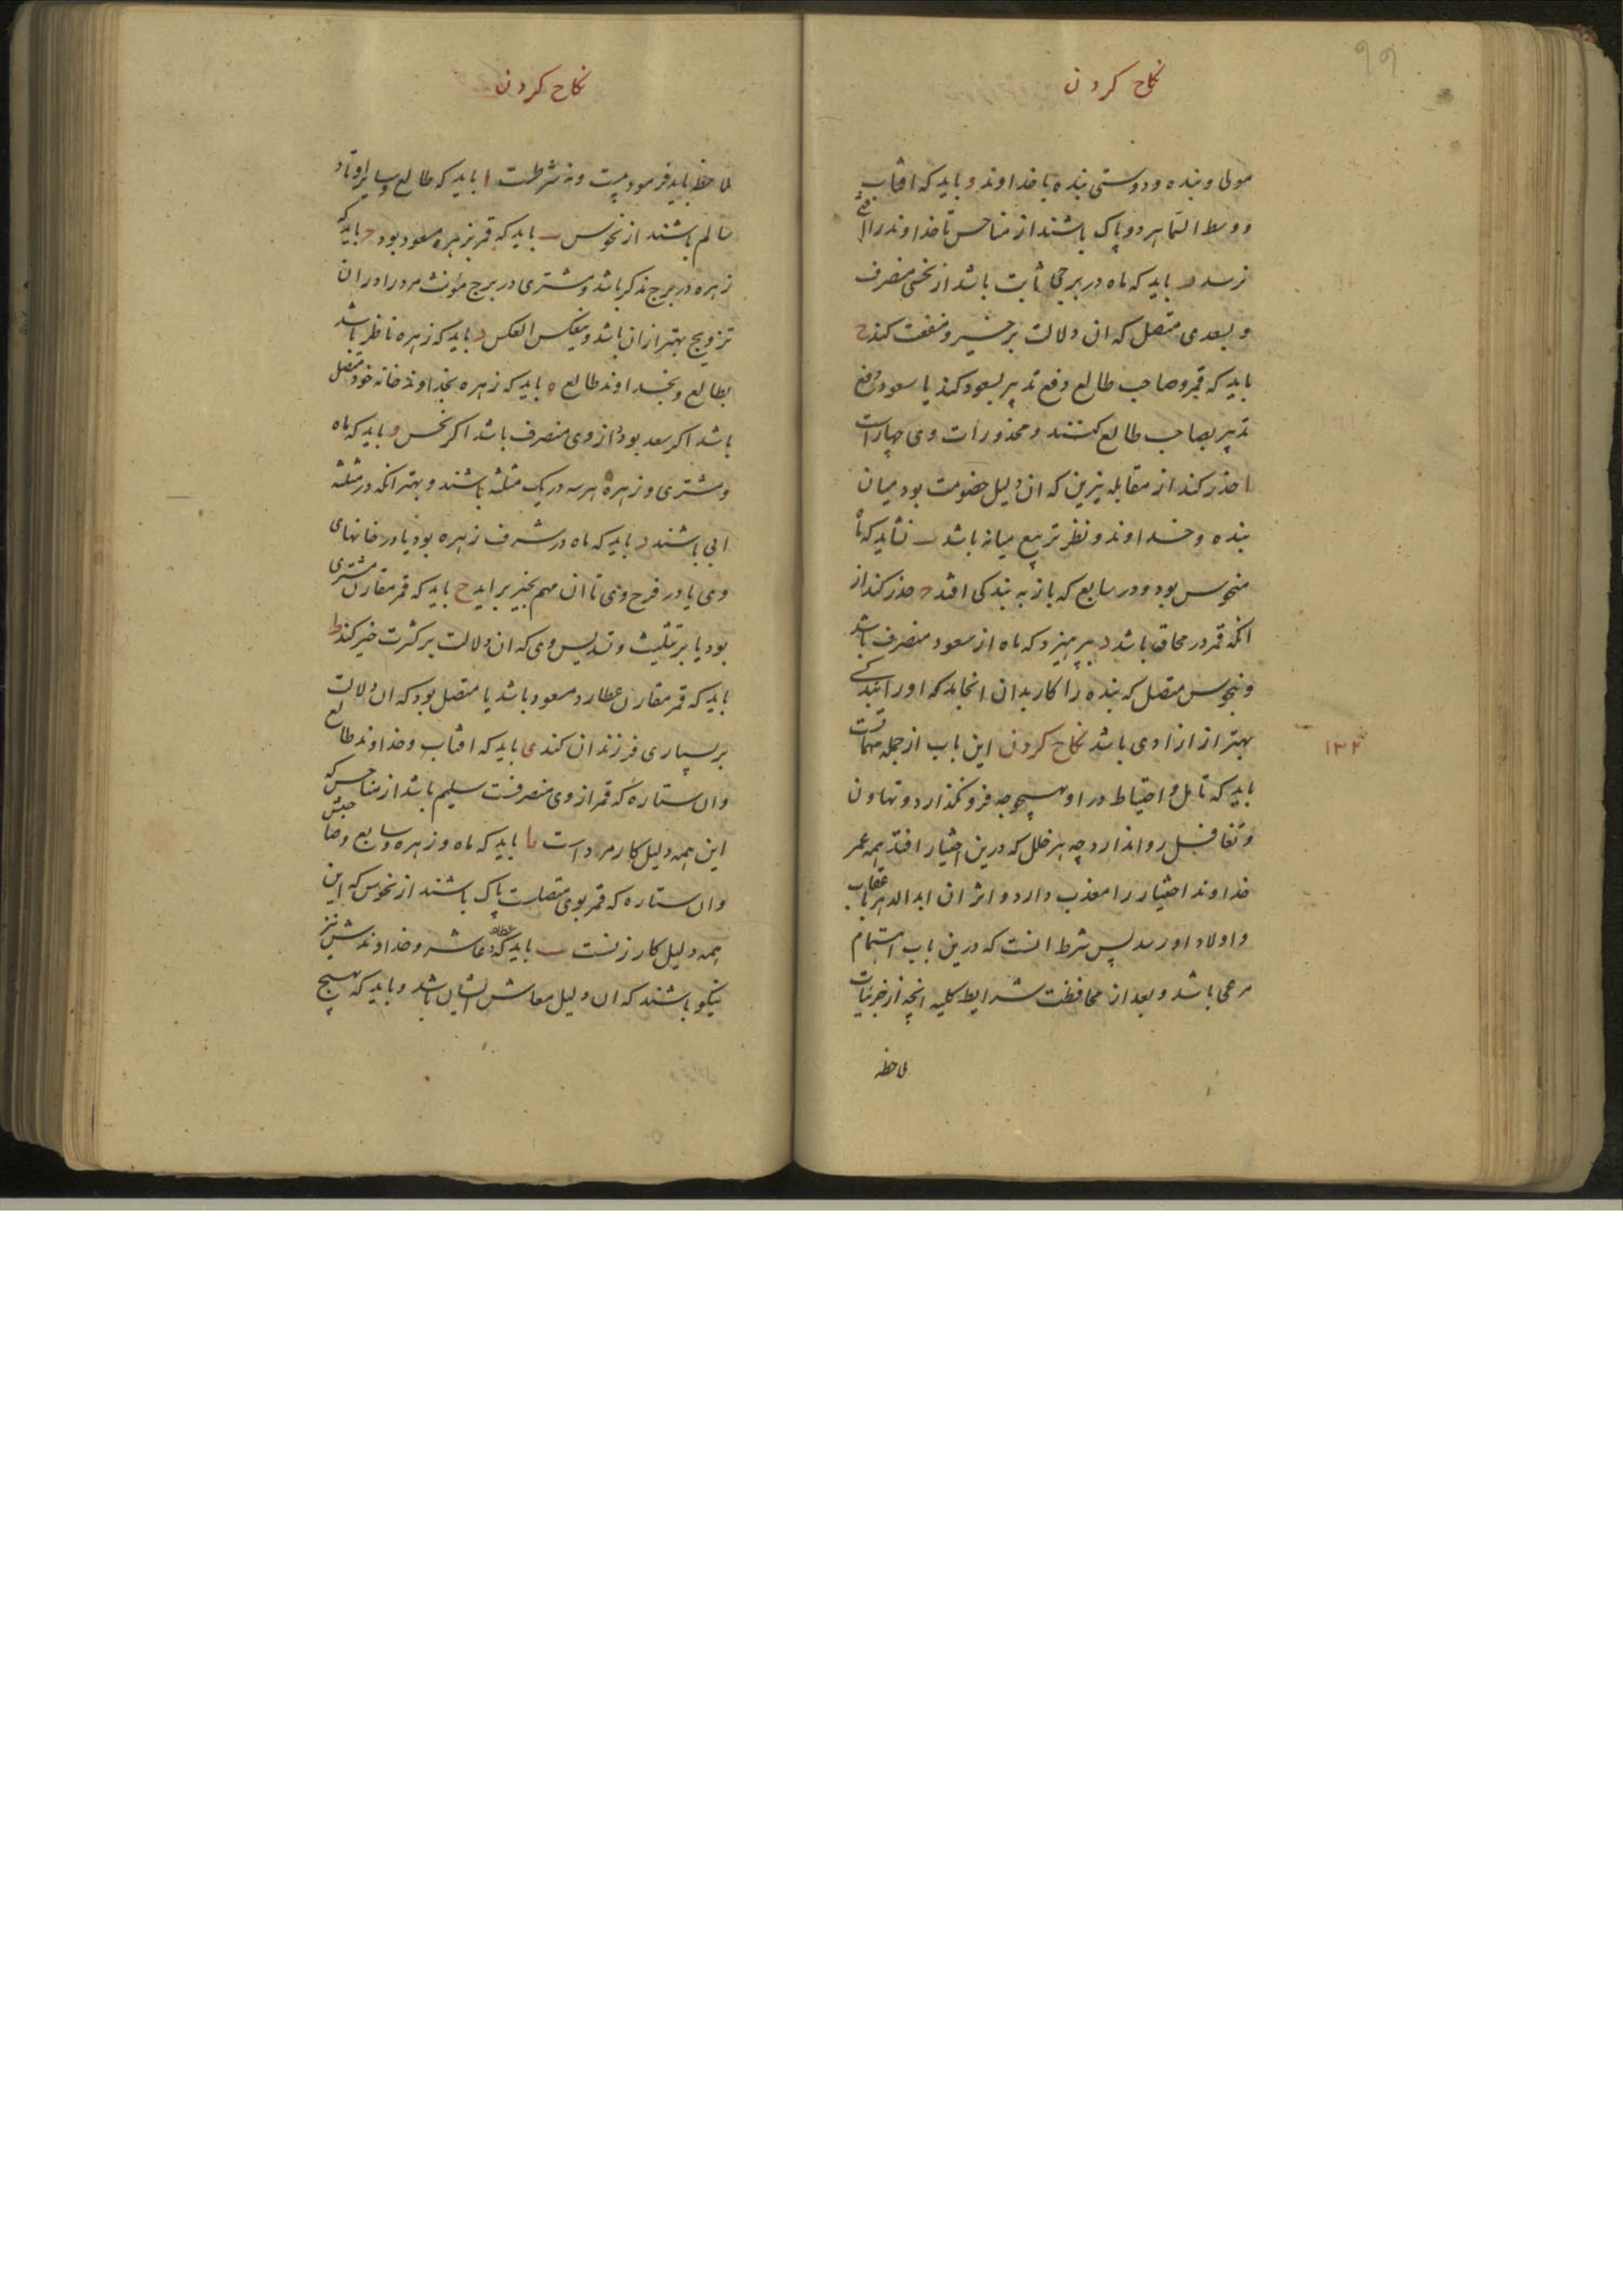 نکاح کردن
مولی و بنده و دوستی بنده با خداوند و باید که افتاب
و وسط السما هر دو پاک باشند از مناحس تا خداوند را
نرسد باید که ماه در برجی ثابت باشد از نحسی منصرف
و بسعدی متصل که ان دلالت بر خیر و منفعت کند ح
باید که قمر و صاحب طالع دفع تدبیر بسعود کند یا سعود دفع
تدبیر بصاحب طالع کنند و محذورات وی چهار است
ا حذر کند از مقابله نیرین که ان دلیل خصومت بود میان
بنده و خداوند و نظر تربیع میانه باشد ب نشاید که ماه
منحوس بود و در سابع که باز به بندکی افتد ح حذر کند از
انکه قمر در محاق باشد د بپرهیزد که ماه از سعود منصرف باشد
و بنحوس متصل که بنده را کار بدان انجامد که او را بندکی
بهتر از ازادی باشد نکاح کردن این باب از جمله مهماتست
۱۳۲
باید که تامل و احتیاط در او بهیچوجه فرو نکذارد و تهاون
و تغافل روا ندارد چه هر خلل که درین اختیار افتد همه عمر
خداوند اختیار را معذب دارد و اثر ان ابد الدهر باعقاب
و اولاد او رسد پس شرط انست که درین باب اهتمام
مرعی باشد و بعد از محافظت شرایط کلیه انچه از جزئیات
ملاحظه
نکاح کردن
ملاحظه باید فرمود بیست و نه شرطست ا باید که طالع و سایر اوتاد
سالم باشند از نحوس ب باید که قمر بزهره مسعود بود ح باید که
زهره در برج مذکر باشد و مشتری در برج مؤنث مرد را در ان
تزویج بهتر از ان باشد و بعکس العکس د باید که زهره ناظر باشد
بطالع و بخداوند طالع ه باید که زهره بخداوند خانه خود متصل
باشد اکر سعد بود و از وی منصرف باشد اکر نحس و باید که ماه
و مشتری و زهره هر سه در یک مثلثه باشند و بهتر انکه در مثلثه
ابی باشند ر باید که ماه در شرف زهره بود یا در خانهای
وی یا در فرح وی تا ان مهم بخیر براید ح باید که قمر مقارن مشتری
بود یا بر تثلیث و تسدیس وی که ان دلالت بر کثرت خیر کند ط
باید که قمر مقارن عطارد مسعود باشد یا متصل بود که ان دلالت
بر بسیاری فرزندان کند ی باید که افتاب و خداوند طالع
وان ستاره که قمر از وی منصرفست سلیم باشد از مناحس که
این همه دلیل کار مرد است یا باید که ماه و زهره و سابع و صاحبش
وان ستاره که قمر بوی متصلست پاک باشند از نحوس که این
همه دلیل کار زنست یب باید که عطارد و عاشر و خداوندش نیز
نیکو باشند که ان دلیل معاش ایشان باشد و باید که هیچ